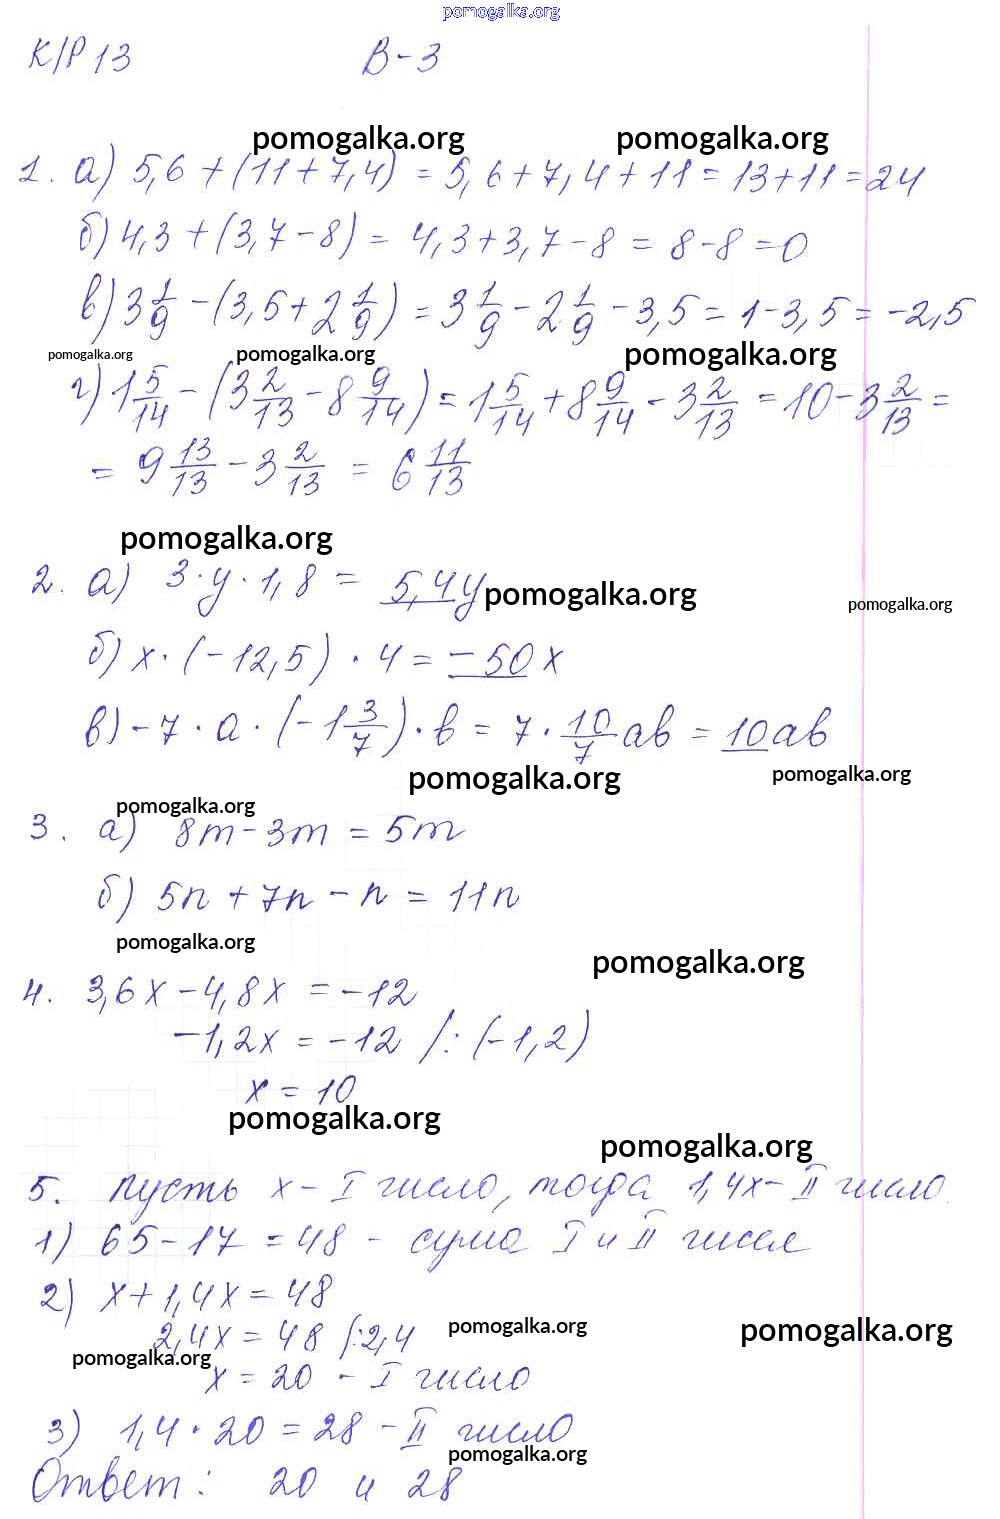 pomogalka.org
К/Р 13 В-3
pomogalka.org pomogalka.org
1. а) 5,6 + (11 + 7,4) = 5,6 + 7,4 + 11 = 13 + 11 = 24
б) 4,3 + (3,7 - 8) = 4,3 + 3,7 - 8 = 8 - 8 = 0
в) 3 1/9 - (3,5 + 2 1/9) = 3 1/9 - 2 1/9 - 3,5 = 1 - 3,5 = -2,5
pomogalka.org pomogalka.org pomogalka.org
г) 1 5/14 - (3 2/13 - 8 9/14) = 1 5/14 + 8 9/14 - 3 2/13 = 10 - 3 2/13 =
= 9 13/13 - 3 2/13 = 6 11/13
pomogalka.org
2. а) 3 · y · 1,8 = 5,4y pomogalka.org
pomogalka.org
б) x · (-12,5) · 4 = -50x
в) -7 · a · (-1 3/7) · b = 7 · 10/7 ab = 10ab
pomogalka.org pomogalka.org
pomogalka.org
3. а) 8m - 3m = 5m
б) 5n + 7n - n = 11n
pomogalka.org
pomogalka.org
4. 3,6x - 4,8x = -12
-1,2x = -12 /: (-1,2)
x = 10
pomogalka.org
pomogalka.org
5. пусть x - I число, тогда 1,4x - II число.
1) 65 - 17 = 48 - сума I и II чисел
2) x + 1,4x = 48
2,4x = 48 /:2,4 pomogalka.org pomogalka.org
pomogalka.org
x = 20 - I число
3) 1,4 · 20 = 28 - II число
pomogalka.org
Ответ: 20 и 28